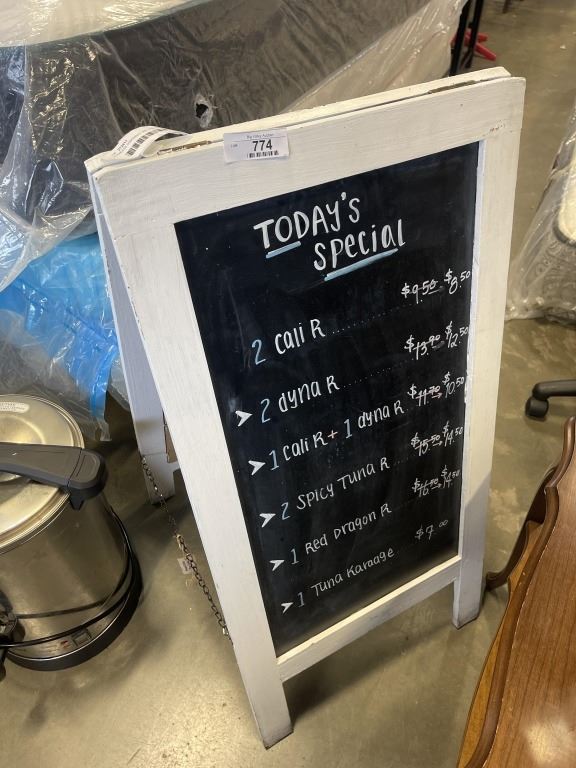 Big Valley Auction
774
TODAY'S
SPECIAL
2 Cali R ........ $9.50 $8.50
> 2 dyna R ........ $13.90 $12.50
> 1 Cali R + 1 dyna R $11.70 $10.50
> 2 Spicy Tuna R $15.50 $14.50
> 1 Red Dragon R $16.50 $14.50
> 1 Tuna Karaage $7.00